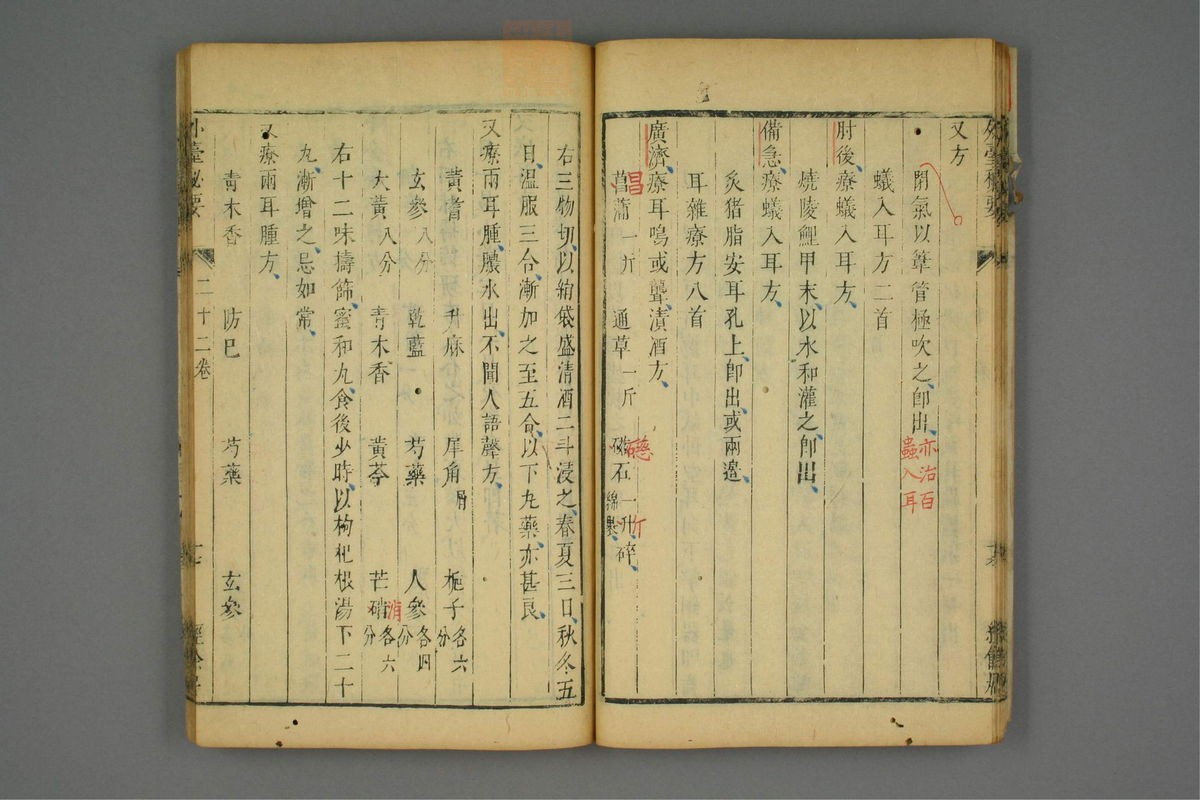 又方
閉氣以葦管極吹之即出
亦治百
蟲入耳
蟻入耳方二首
肘後療蟻入耳方
燒陵鯉甲末以水和灌之即出
備急療蟻入耳方
炙猪脂安耳孔上即出或兩邉
耳雜療方八首
廣濟療耳鳴或聾漬酒方
菖蒲一斤 通草一斤 磁石一升碎綿褁
昌 磁 斤
右三物切以絹袋盛清酒二斗浸之春夏三日秋冬五
日温服三合漸加之至五合以下丸藥亦甚良
又療兩耳腫膿水出不聞人語聲方
黃耆 升麻 犀角屑 梔子各六分
玄參八分 乾藍 芍藥 人參各四分
大黃八分 青木香 黃芩 芒硝各六分
消
右十二味擣篩蜜和丸食後少時以枸杞根湯下二十
丸漸增之忌如常
又療兩耳腫方
青木香 防巳 芍藥 玄參
外臺祕要 二十二卷